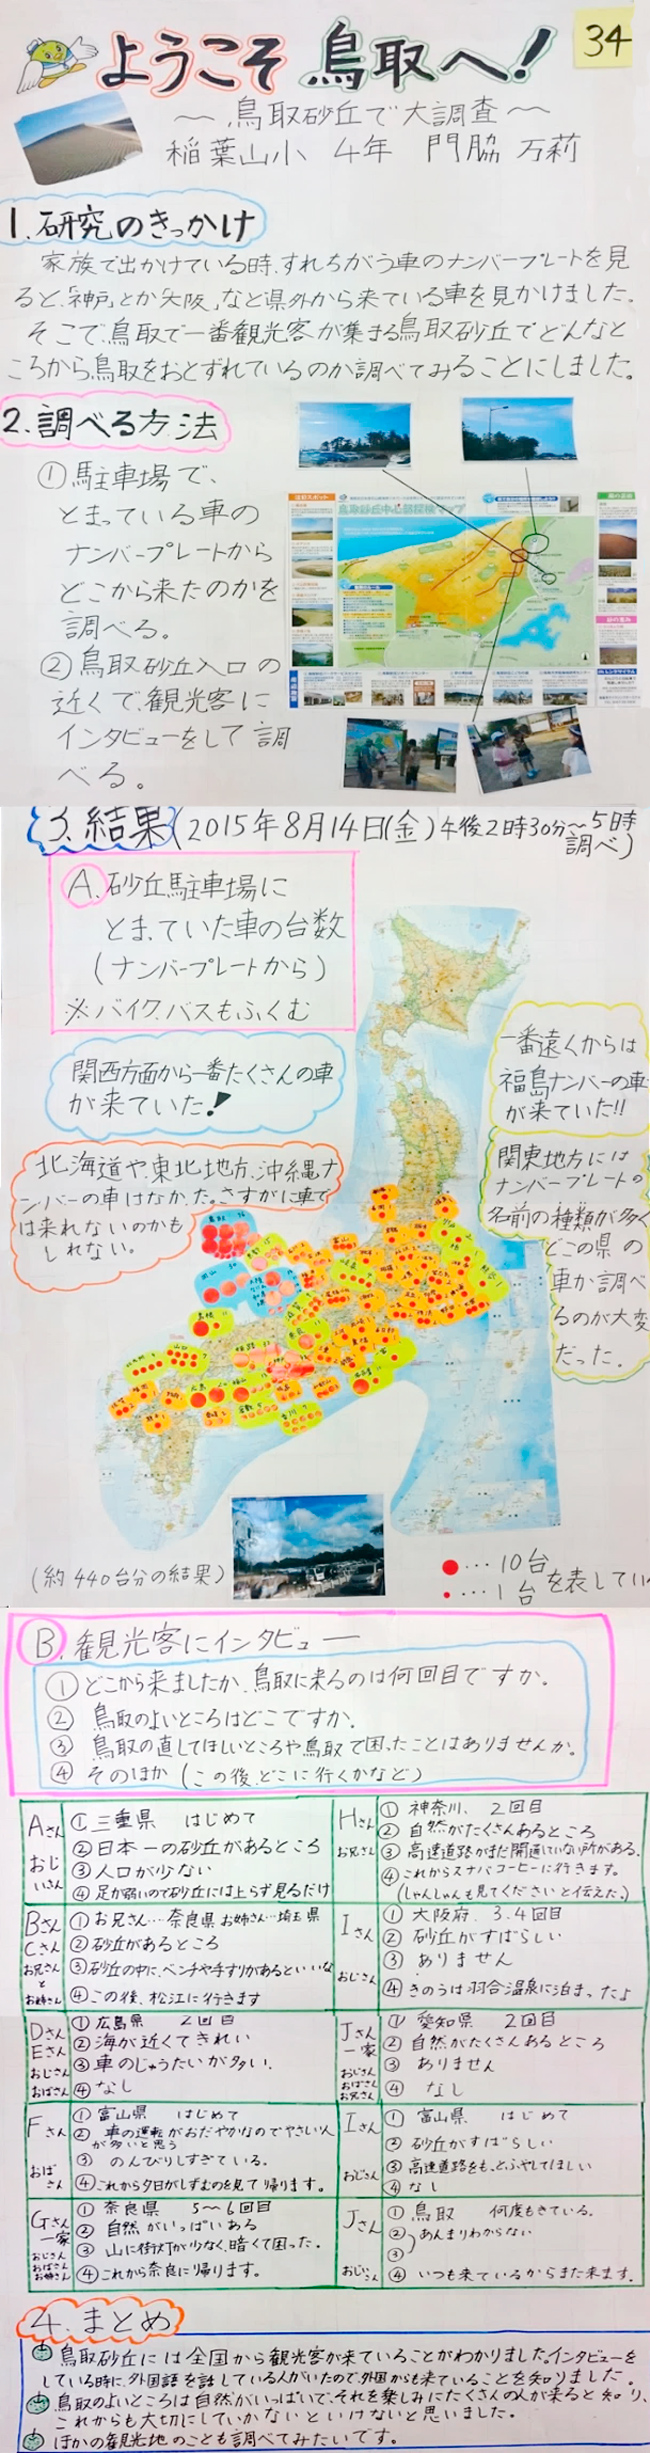 ようこそ鳥取へ!
34
～鳥取砂丘で大調査～
稲葉山小 4年 門脇 万莉
1.研究のきっかけ
家族で出かけている時、すれちがう車のナンバープレートを見
ると、「神戸」とか「大阪」など県外から来ている車を見かけました。
そこで、鳥取で一番観光客が集まる鳥取砂丘でどんなと
ころから鳥取をおとずれているのか調べてみることにしました。
2.調べる方法
①駐車場で、
とまっている車の
ナンバープレートから
どこから来たのかを
調べる。
②鳥取砂丘入口の
近くで、観光客に
インタビューをして調
べる。
鳥取砂丘中心部探検マップ
3.結果(2015年8月14日(金)午後2時30分～5時
調べ)
A.砂丘駐車場に
とまっていた車の台数
(ナンバープレートから)
※バイク、バスもふくむ
関西方面から一番たくさんの車
が来ていた!
北海道や、東北地方、沖縄ナ
ンバーの車はなかった。さすがに車で
は来れないのかも
しれない。
一番遠くからは
福島ナンバーの車
が来ていた!!
関東地方には
ナンバープレートの
名前の種類が多く
どこの県の
車か調べ
るのが大変
だった。
(約440台分の結果)
●…10台
•…1台を表してい
B.観光客にインタビュー
①どこから来ましたか、鳥取に来るのは何回目ですか。
②鳥取のよいところはどこですか。
③鳥取の直してほしいところや鳥取で困ったことはありませんか。
④そのほか(この後、どこに行くかなど)
Aさん
おじいさん
①三重県 はじめて
②日本一の砂丘があるところ
③人口が少ない
④足が弱いので砂丘には上らず見るだけ
Bさん
Cさん
お兄さん
と
お姉さん
①お兄さん…奈良県 お姉さん…埼玉県
②砂丘があるところ
③砂丘の中に、ベンチや手すりがあるといいな
④この後、松江に行きます
Dさん
Eさん
おじさん
おばさん
①広島県 2回目
②海が近くてきれい
③車のじゅうたいが多い。
④なし
Fさん
おばさん
①富山県 はじめて
②車の運転がおだやかなのでやさしい人
が多いと思う
③のんびりしすぎている。
④これから夕日がしずむのを見て帰ります。
Gさん
一家
おじさん
おばさん
お姉さん
①奈良県 5～6回目
②自然がいっぱいある
③山に街灯が少なく、暗くて困った。
④これから奈良に帰ります。
Hさん
お兄さん
①神奈川、2回目
②自然がたくさんあるところ
③高速道路がまだ開通していない所がある。
④これからスナバコーヒーに行きます。
(しゃんしゃんも見てくださいと伝えた。)
Iさん
おじさん
①大阪府、3.4回目
②砂丘がすばらしい
③ありません
④きのうは羽合温泉に泊まったよ
Jさん
一家
おじさん
おばさん
お兄さん
①愛知県 2回目
②自然がたくさんあるところ
③ありません
④なし
Iさん
おじさん
①富山県 はじめて
②砂丘がすばらしい
③高速道路をもっとふやしてほしい
④なし
Jさん
おじいさん
①鳥取 何度もきている。
②あんまりわからない
③
④いつも来ているからまた来ます。
4.まとめ
鳥取砂丘には全国から観光客が来ていることがわかりました。インタビューを
している時に、外国語を話している人がいたので、外国からも来ていることを知りました。
鳥取のよいところは自然がいっぱいで、それを楽しみにたくさんの人が来ると知り、
これからも大切にしていかないといけないと思いました。
ほかの観光地のことも調べてみたいです。